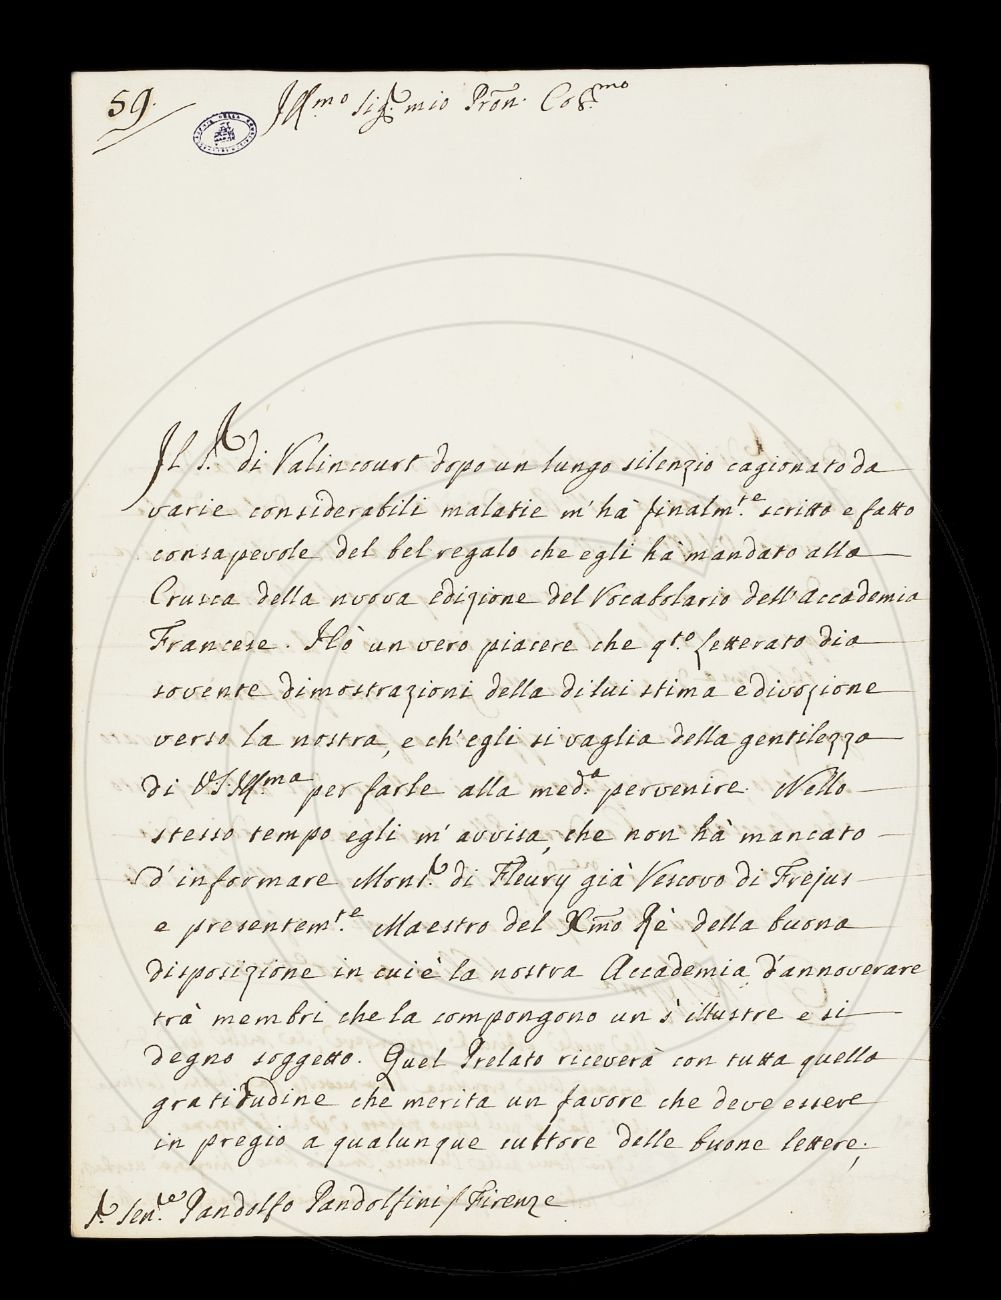 59.
Jll.mo Sig.r mio Pron. Col.mo
Jl S.r di Valincourt dopo un lungo silenzio cagionato da
varie considerabili malatie m'hà finalm.te scritto e fatto
consapevole del bel regalo che egli hà mandato alla
Crusca della nuova edizione del Vocabolario dell'Accademia
Francese. Hò un vero piacere che q.to letterato dia
sovente dimostrazioni della di lui stima e divozione
verso la nostra, e ch'egli si vaglia della gentilezza
di VS Jll.ma per farle alla med.a pervenire. Nello
stesso tempo egli m'avvisa, che non hà mancato
d'informare Mons.r di Fleury già Vescovo di Frejus
e presentem.te Maestro del Xmo Rè della buona
disposizione in cui è la nostra Accademia d'annoverare
trà membri che la compongono un sì illustre e si
degno soggetto. Quel Prelato riceverà con tutta quella
gratitudine che merita un favore che deve essere
in pregio a qualunque cultore delle buone lettere;
S.r Sen.re Pandolfo Pandolfini / Firenze